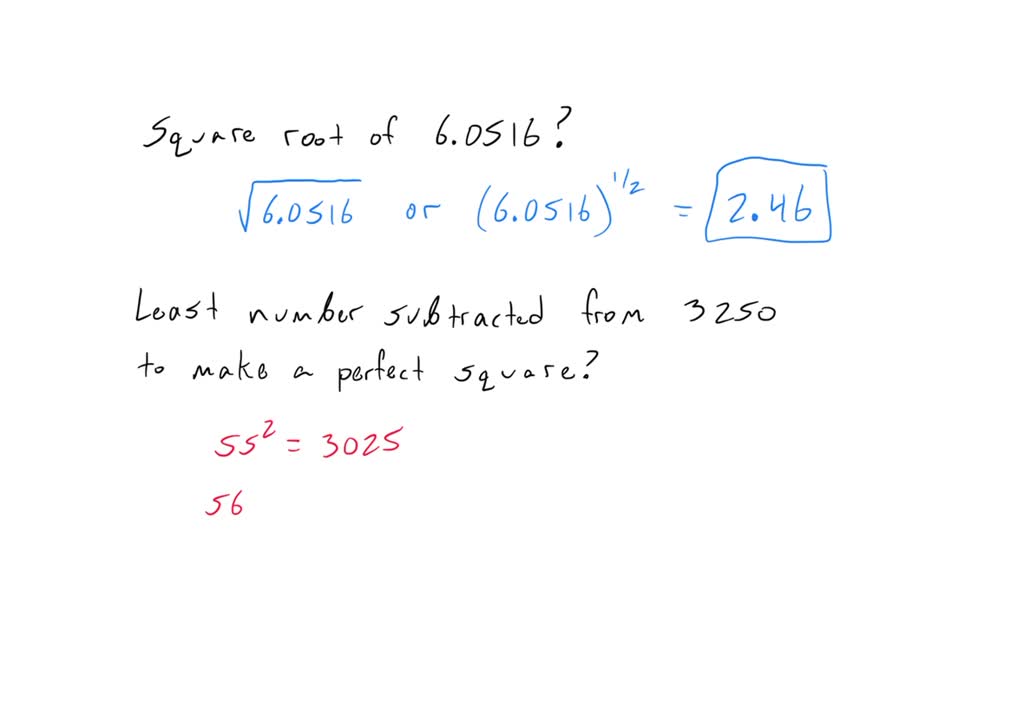 Square root of 6.0516?
√6.0516 or (6.0516)^1/2 = 2.46
Least number subtracted from 3250
to make a perfect square?
55² = 3025
56